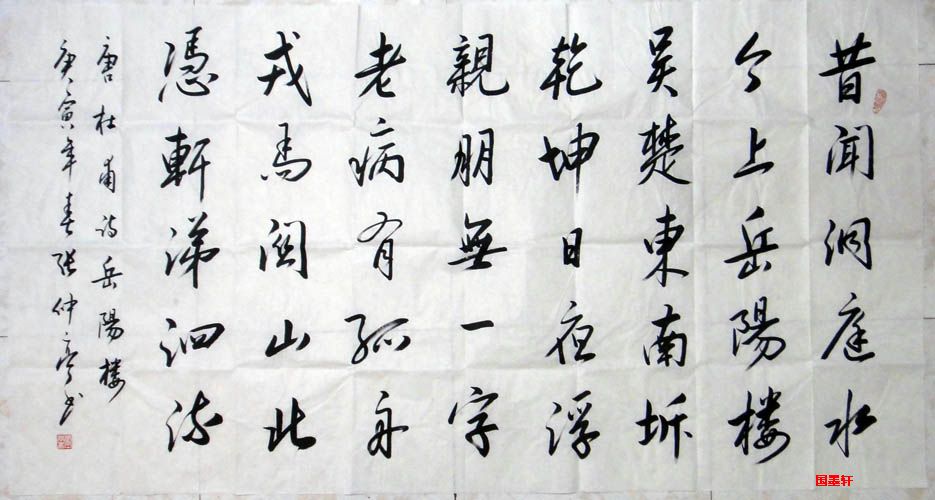 昔闻洞庭水
今上岳陽楼
吴楚東南坼
乾坤日夜浮
親朋無一字
老病有孤舟
戎馬関山北
憑軒涕泗流
唐杜甫诗岳陽楼
庚寅年春张仲亭书
国墨轩